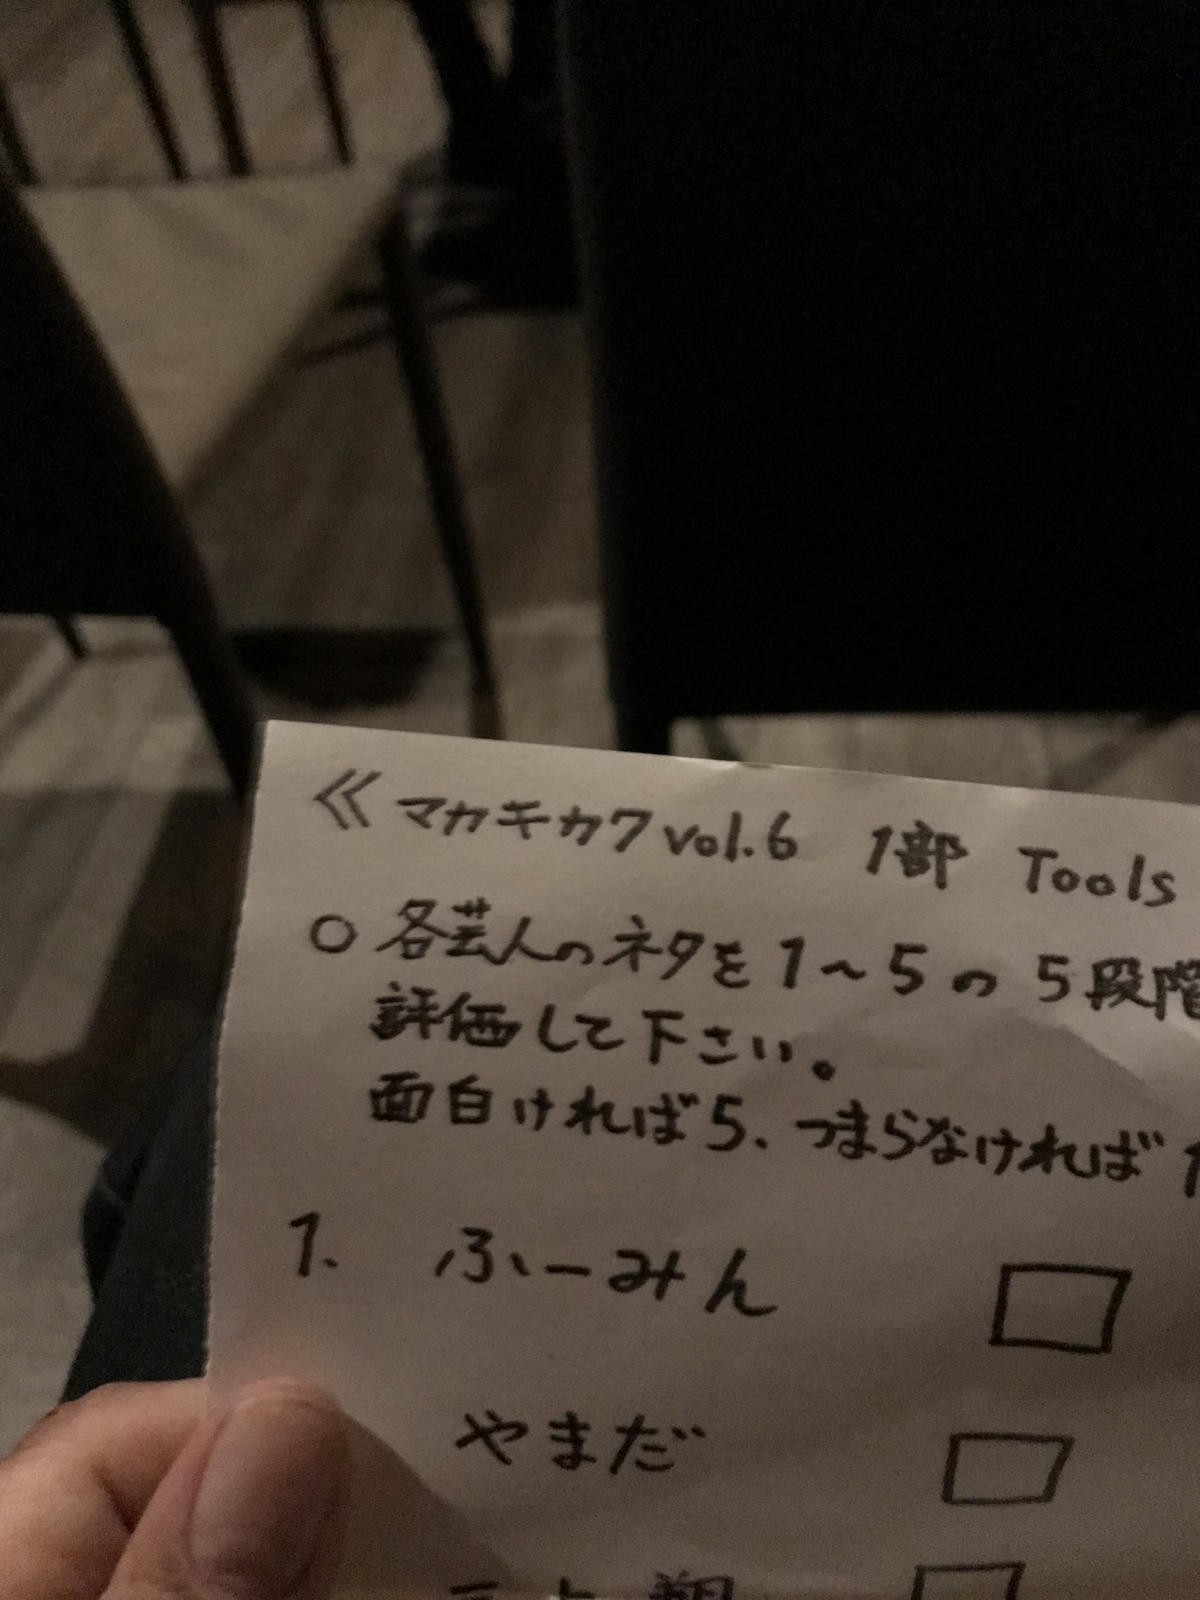 《マカキカワ vol.6 1部 Tools
○ 各芸人のネタを1~5の5段階
評価して下さい。
面白ければ5、つまらなければ1
1. ふーみん
やまだ